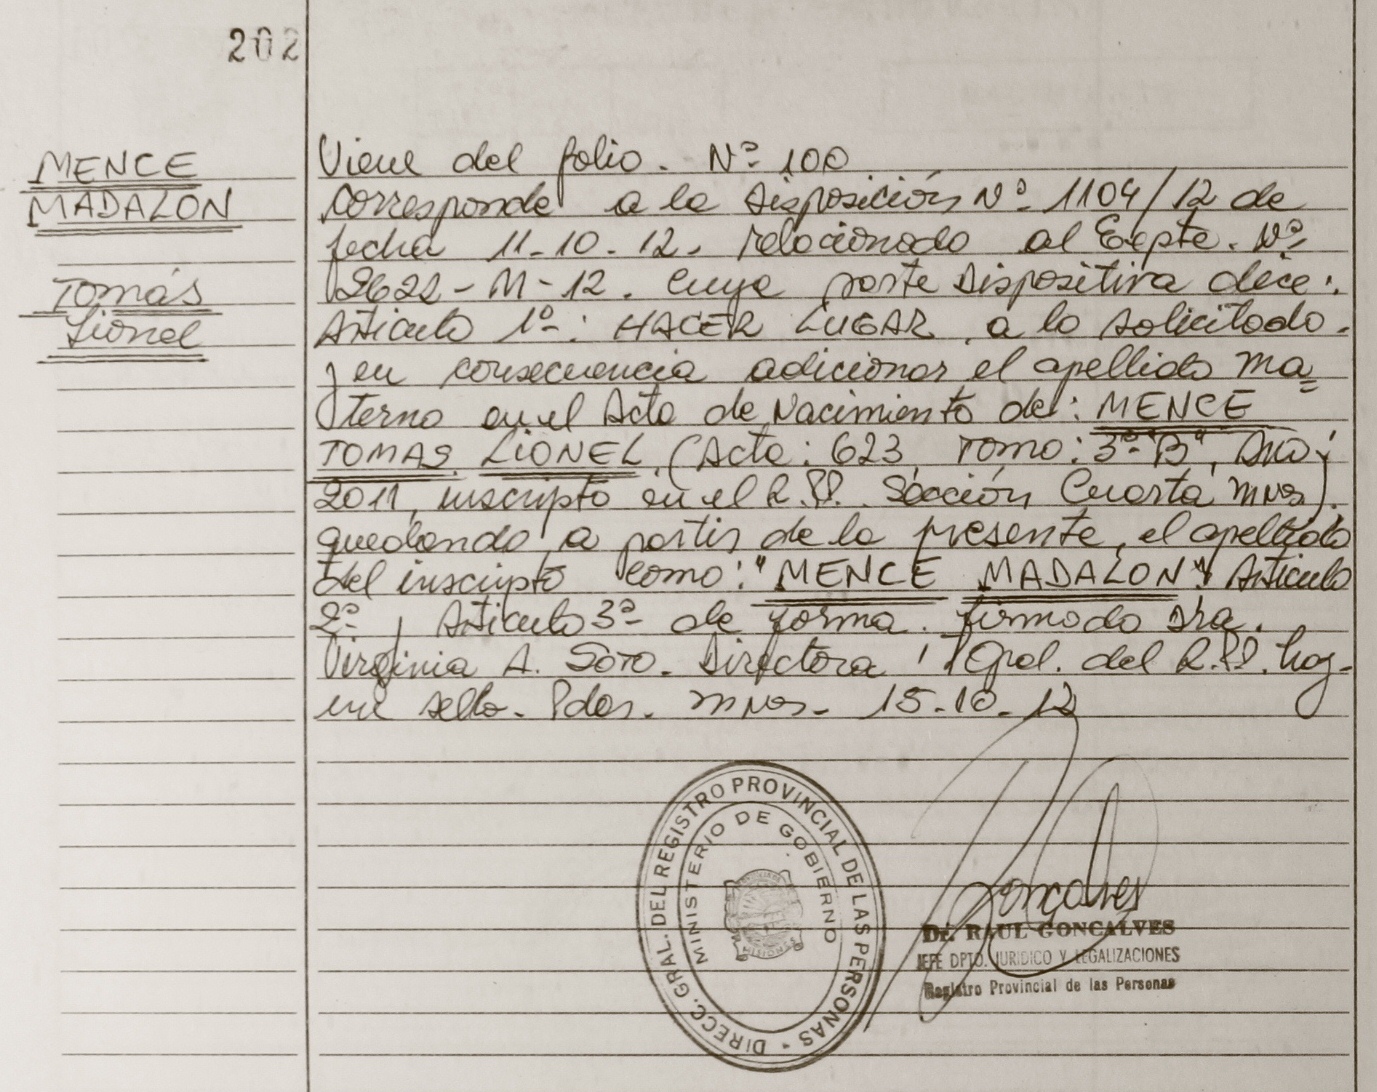 202
MENCE
MADALON
Tomás
Lionel
Viene del folio. Nº 100
Corresponde a la Disposición Nº 1104/12 de
fecha 11-10-12, relacionado al Expte. Nº
2622-M-12. Cuya parte Dispositiva dice:
Artículo 1º: HACER LUGAR a lo solicitado.
y en consecuencia adicionar el apellido ma=
terno en el Acta de Nacimiento de: MENCE
TOMAS LIONEL (Acta: 623, Tomo: 3º"B", Año:
2011, inscripto en el R.P.P. Sección Cuarta Mnes)
quedando a partir de la presente, el apellido
del inscripto como: "MENCE MADALON" Artículo
2º, Artículo 3º de forma. firmado Dra.
Virginia A. Soto. Directora Gral. del R.P.P. hay
un sello. Pdas. Mnes. 15-10-12
DIRECC. GRAL. DEL REGISTRO PROVINCIAL DE LAS PERSONAS
MINISTERIO DE GOBIERNO
MISIONES
Goncalves
Dr. RAUL GONCALVES
JEFE DPTO. JURIDICO Y LEGALIZACIONES
Registro Provincial de las Personas